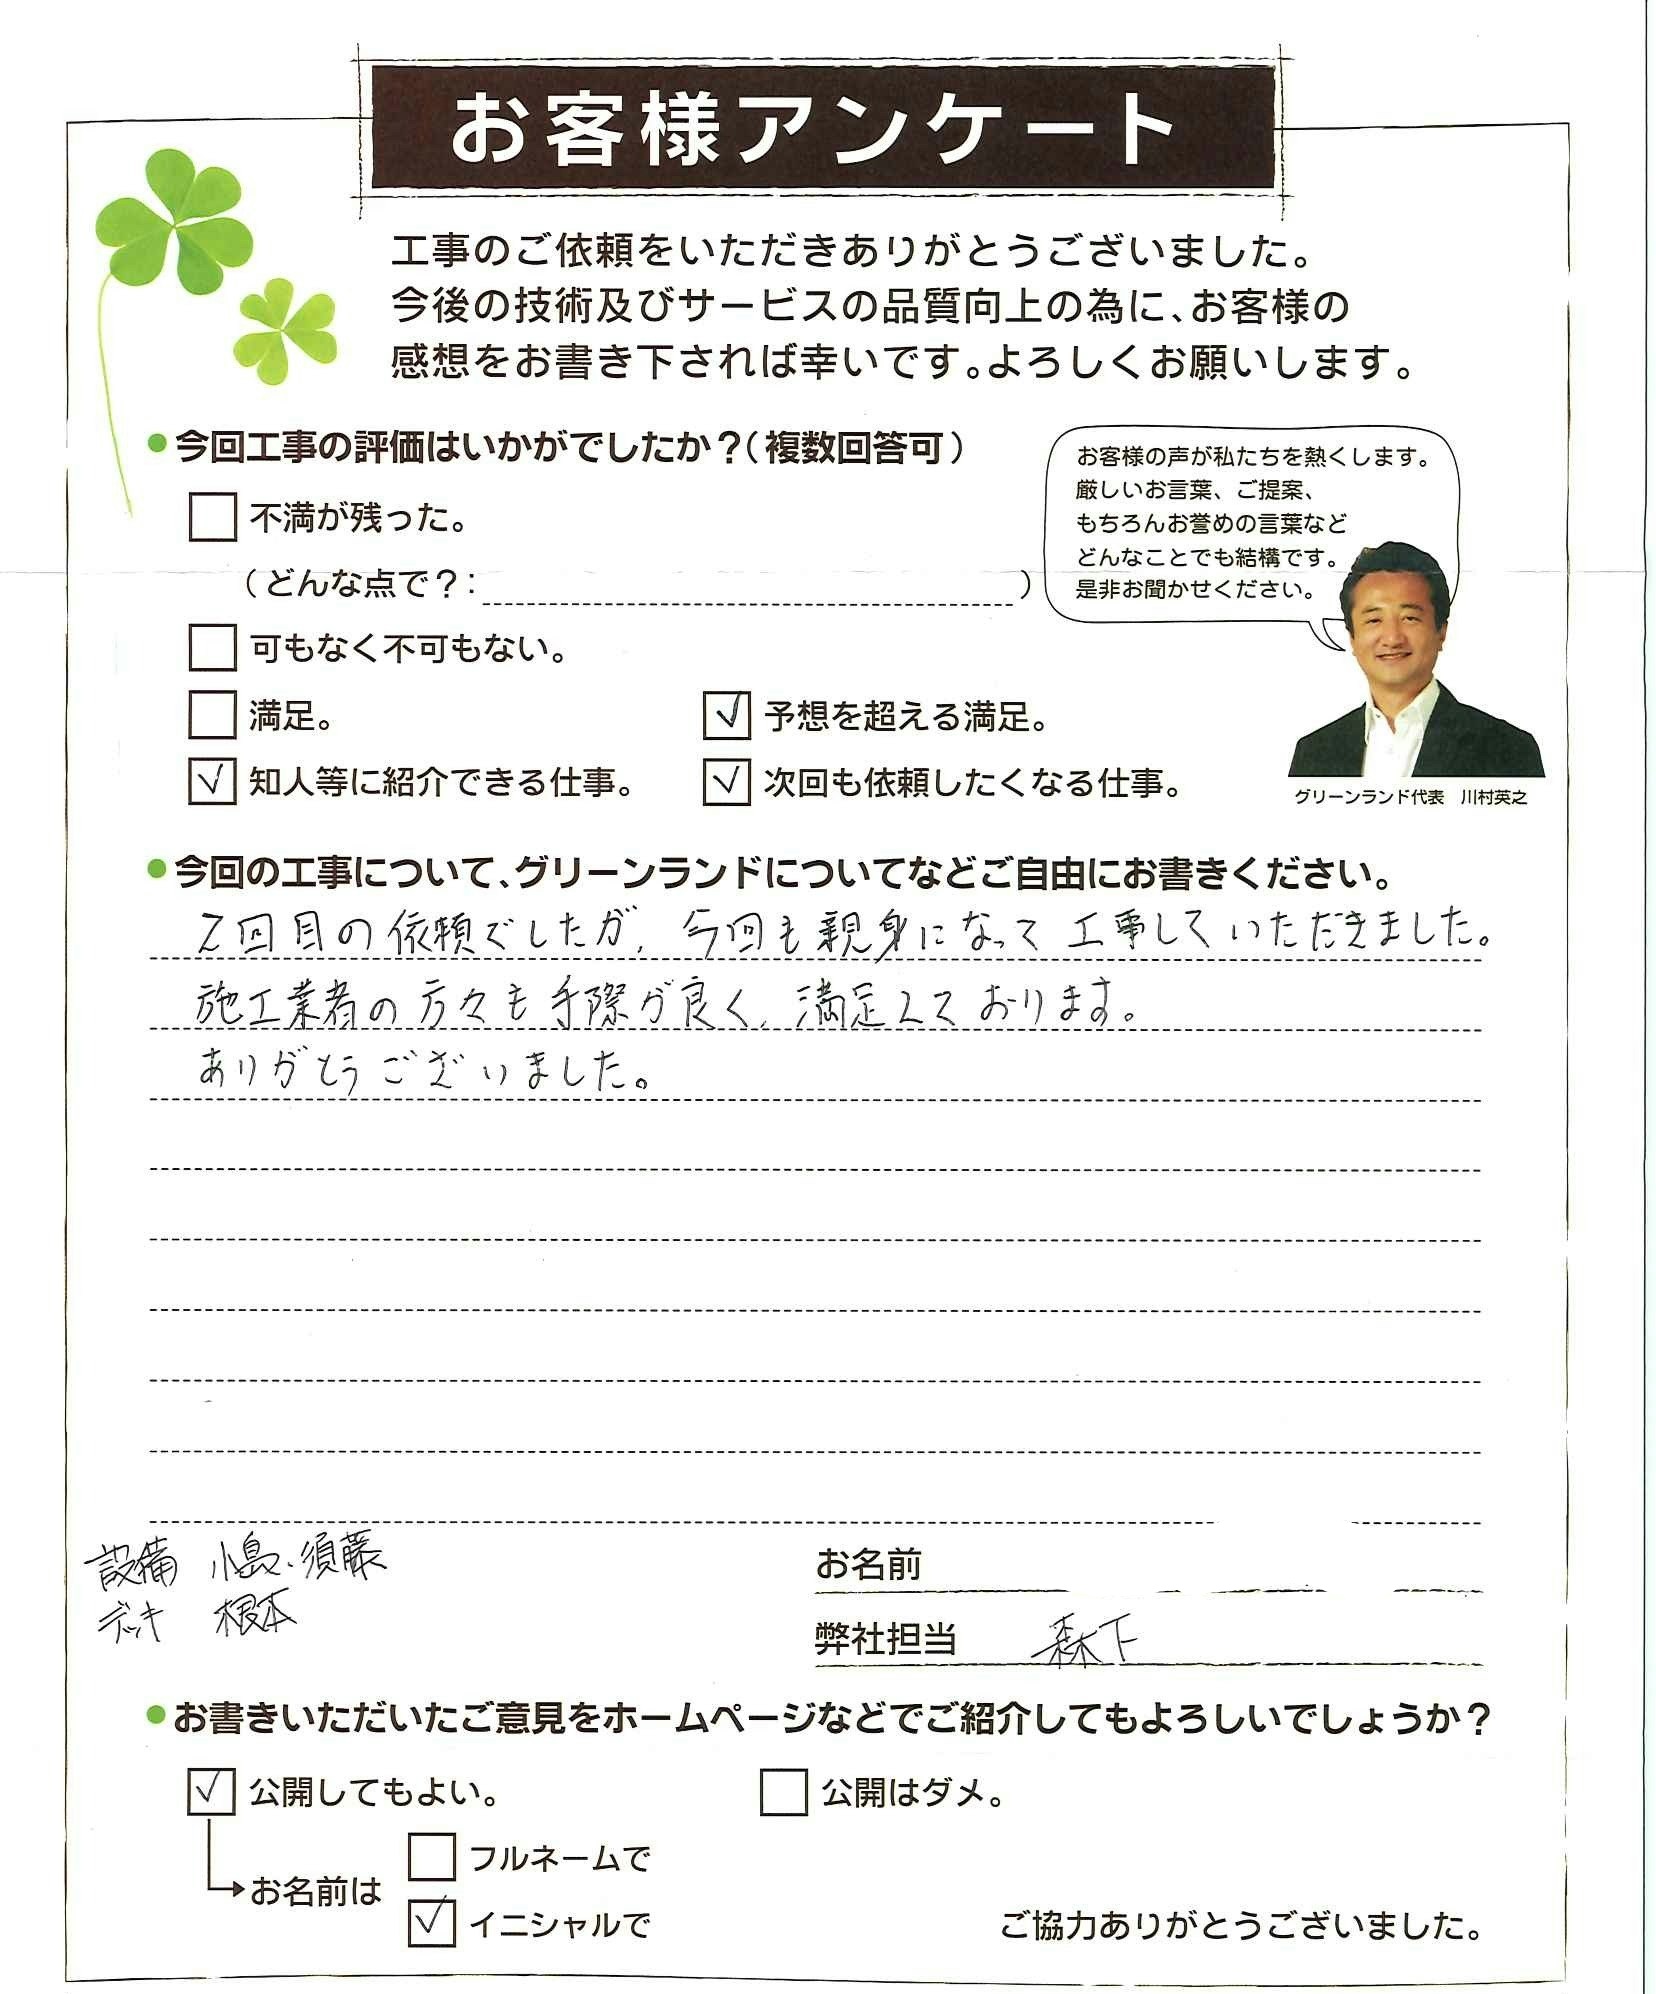 お客様アンケート
工事のご依頼をいただきありがとうございました。
今後の技術及びサービスの品質向上の為に、お客様の
感想をお書き下されば幸いです。よろしくお願いします。
●今回工事の評価はいかがでしたか？（複数回答可）
お客様の声が私たちを熱くします。
厳しいお言葉、ご提案、
もちろんお誉めの言葉など
どんなことでも結構です。
是非お聞かせください。
不満が残った。
（どんな点で？：　）
可もなく不可もない。
満足。
✓ 予想を超える満足。
✓ 知人等に紹介できる仕事。
✓ 次回も依頼したくなる仕事。
グリーンランド代表　川村英之
●今回の工事について、グリーンランドについてなどご自由にお書きください。
2回目の依頼でしたが、今回も親身になって工事していただきました。
施工業者の方々も手際が良く、満足しております。
ありがとうございました。
設備　小島、須藤
デッキ　根本
お名前
弊社担当　森下
●お書きいただいたご意見をホームページなどでご紹介してもよろしいでしょうか？
✓ 公開してもよい。
公開はダメ。
お名前は
フルネームで
✓ イニシャルで
ご協力ありがとうございました。